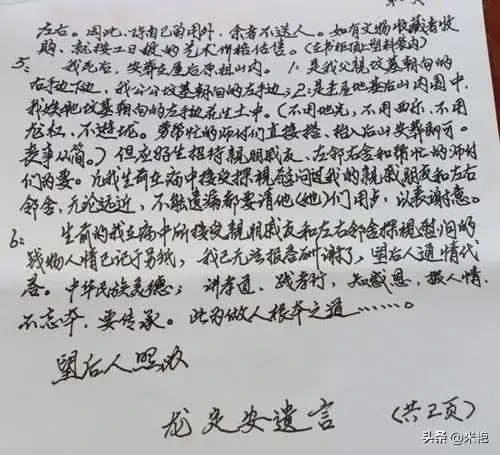 左右。因此,除自己留用外,余者不送人。如有文物收藏者收
购,就按工日娘的艺术价格估售。(在书柜顶上塑料袋内)
5、我死后,安葬在屋后原祖山内。1:是我父親坟墓朝向的
右手下边,我公公坟墓朝向的左手边;2:是老屋地基后山内圈中,
我娭毑坟墓朝向的左手边花生土中。(不用地光,不用西乐,不用
龙杠,不建垅。劳帮忙的师付们直接抢,抢入后山安葬即可。
丧事从简。)但应好生招待親朋戚友、左邻右舍和帮忙的师付
们为要。凡我生前在病中接受探視慰问过我的親戚朋友和左右
邻舍,无论远近,不能遗漏都要请他(她)们用点,以表谢意。
6: 生前的我在病中所接受親朋戚友和左右邻舍探視慰问的
钱物人情已记于另纸,我已无法报答酬谢了,望后人通情代
答。中华民族美德:讲孝道、践孝行,知感恩,报人情,
不忘本,要传承。此为做人根本之道……。
望后人照收
龙定安遺言 (共五页)
头条 @米艳